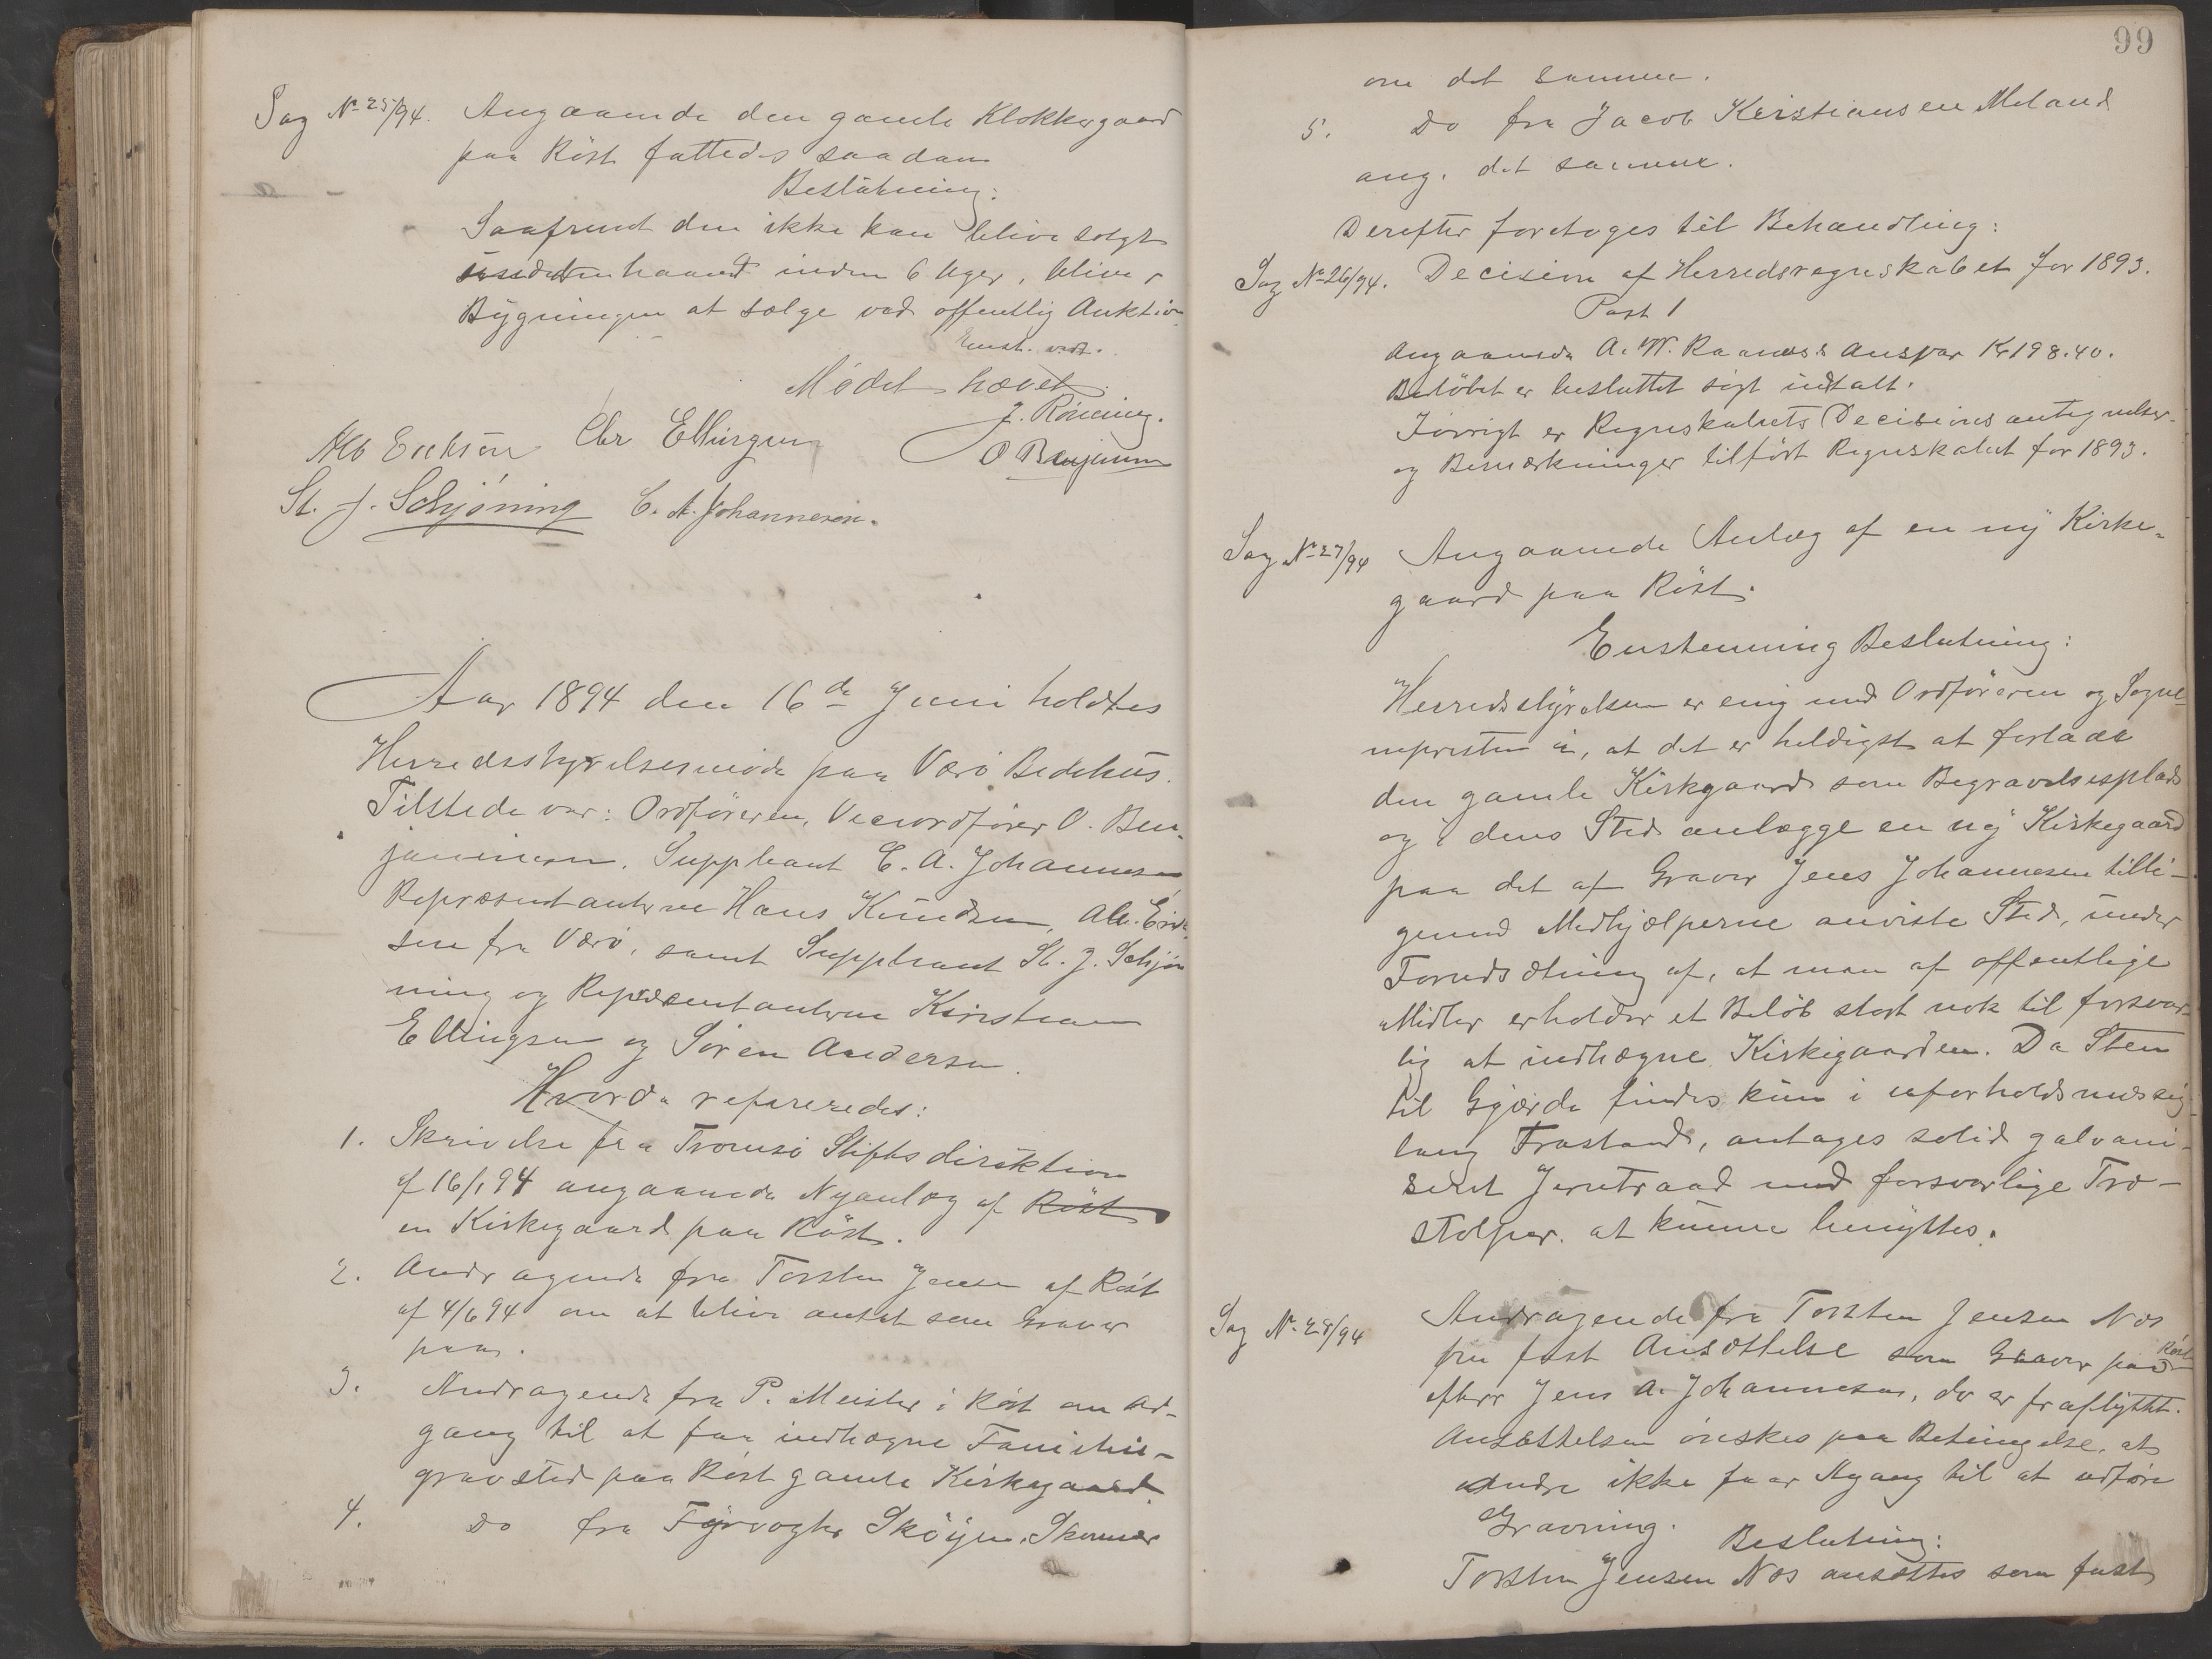 Sag No 25/94. Angaaende den gamle Klokkergaard
paa Röst fattedes saadan
Beslutning:
Saafremt den ikke kan blive solgt
underhaand inden 6 Uger, bliver
Bygningen at sælge ved offentlig Auktion.
Enst. vedt.
Mödet hævet
J. Rönning.
Alb Ericksen Chr Ellingsen
O Benjaminsen
St. J. Schjöning C. A. Johannesen.
Aar 1894 den 16de Juni holdtes
Herredsstyrelsesmöde paa Værö Bedehus.
Tilstede var: Ordföreren, Viceordförer O. Ben-
jaminsen, Suppleant C. A. Johannesen
Repræsentanterne Hans Knudsen, Alb. Erik-
sen fra Værö, samt Suppleant St. J. Schjö-
ning og Repræsentanterne Kirstian
Ellingsen og Sören Andersen.
Hvorda refereredes:
1. Skrivelse fra Tromsö Stiftsdirektion
af 16/1 94 angaaende Nyanlæg af Röst
en Kirkegaard paa Röst.
2. Andragende fra Torsten Jensen af Röst
af 4/6 94 om at blive antat som Graver
paa.
3. Andragende fra P. Meister i Röst om Ad-
gang til at faa indhegne Familie-
gravsted paa Röst gamle Kirkegaard.
4. Do fra Fyrvogter Sköyen, Skomvær
99
om det samme.
5. Do fra Jacob Kirstiansen Meland
ang. det samme.
Derefter foretoges til Behandling:
Sag No 26/94. Decision af Herredsregnskabet for 1893.
Post 1
Angaaende A. W. Raanæss Ansvar Kr 198.40.
Belöbet er besluttet sögt indtalt.
Iövrigt er Regnskabets Decisionsantegnelser
og Bemærkninger tilfört Regnskabet for 1893.
Sag No 27/94 Angaaende Anlæg af en ny Kirke-
gaard paa Röst.
Enstemmig Beslutning:
Herredsstyrelsen er enig med Ordföreren og Sogne-
nepresten i, at det er heldigst at forlade
den gamle Kirkgaard som Begravelsesplads
og i dens Sted anlægge en ny Kirkegaard
paa det af Graver Jens Johannesen tilli-
gemed Medhjælperne anviste Sted, under
Forudsætning af, at man af offentlige
Midler erholder et Belöb stort nok til forsvar-
lig at indhægne Kirkegaarden. Da Sten
til Gjærde findes kun i uforholdsmæssig
lang Frastand, antages solid galvani-
seret Jerntraad med forsvarlige Træ-
stolper at kunne benyttes.
Sag No 28/94 Andragende fra Torsten Jensen Næs
om fast Ansættelse som Graver paa Röst
efter Jens A. Johannesen, der er fraflyttet.
Ansættelsen önskes paa Betingelse, at
andre ikke faar Agang til at udföre
Gravning.
Beslutning:
Torsten Jensen Næs ansættes som fast